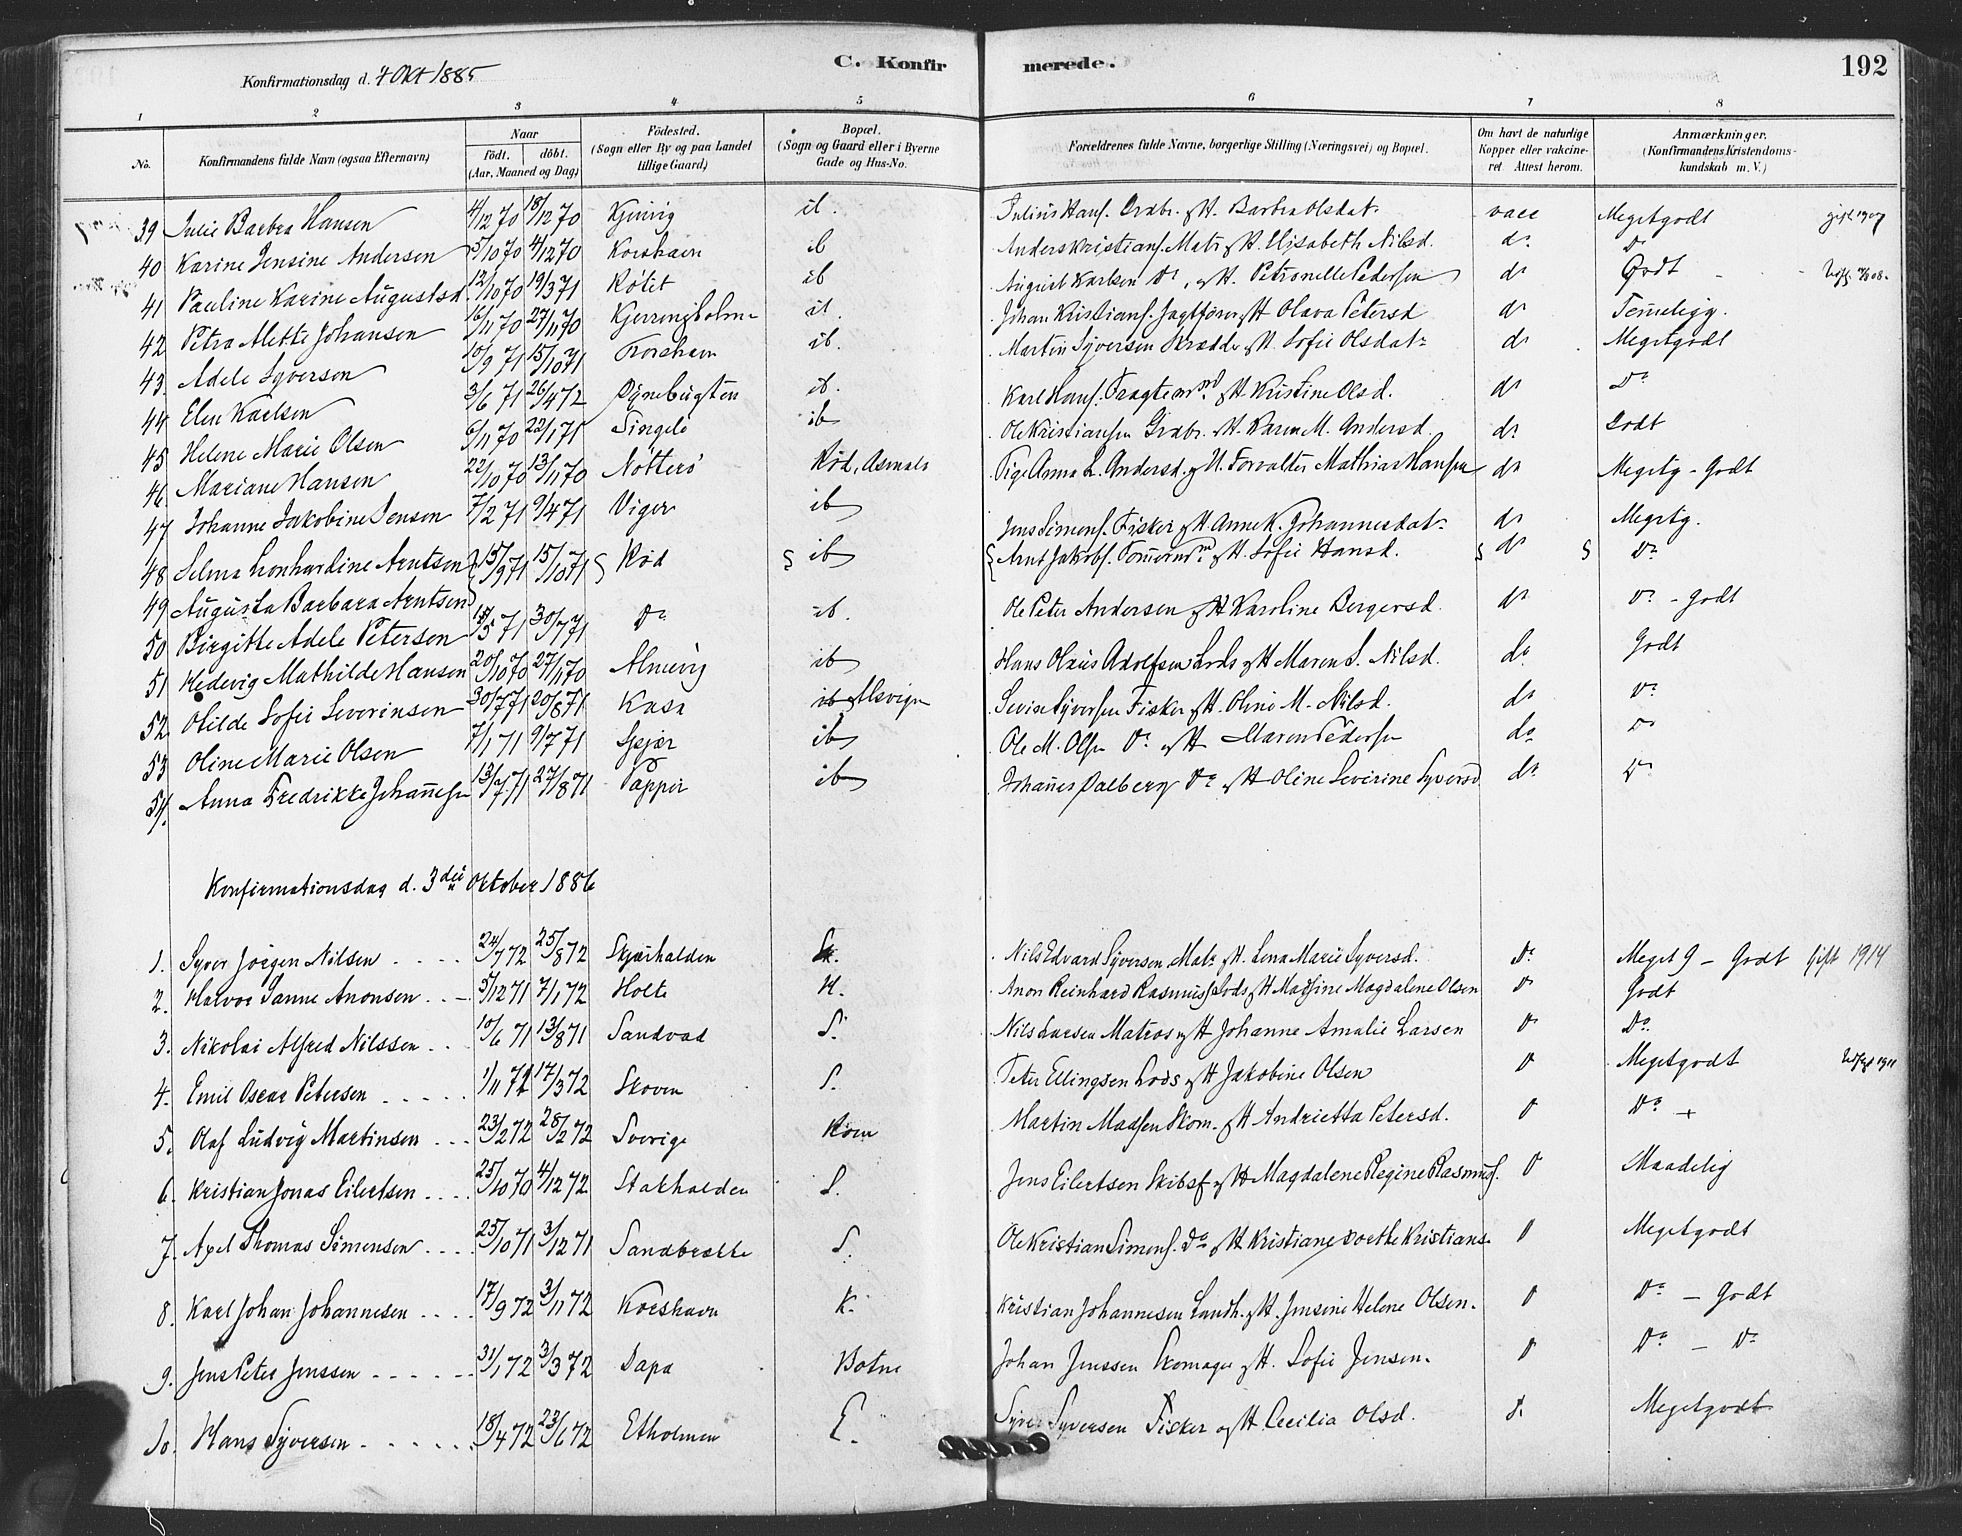 C. Konfirmerede. 192
Konfirmationsdag d. 4 Okt 1885
1 2 3 4 5 6 7 8
No. Konfirmandens fulde Navn (ogsaa Efternavn) Naar födt. döbt. (Aar, Maaned og Dag) Födested. (Sogn eller By og paa Landet tillige Gaard) Bopæl. (Sogn og Gaard eller i Byerne Gade og Hus-No. Forældrenes fulde Navne, borgerlige Stilling (Næringsvei) og Bopæl. Om havt de naturlige Kopper eller vakcineret Attest herom. Anmærkninger. (Konfirmandens Kristendomskundskab m. V.)
39 Julie Barbra Hansen 4/12 70 18/12 70 Kjinvig ib. Julius Hans. Ardbr. & H. Barbra Olsdat. vacc Megetgodt gift 1907
40 Karine Jensine Andersen 5/10 70 4/12 70 Korshavn ib Anders Kristians. Matr & H. Elisabeth Nilsd. do Do
41 Pauline Karine Augustsd. 12/10 70 19/3 71 Rötet ib August Karlsen Do, & H. Petronelle Pedersen do Godt
42 Petra Mette Johansen 16/11 70 27/11 70 Kjerringholmen ib. Johan Kristians. Jagtfører & H Olava Petersd do Temmeligg.
43. Adele Syversen 10/9 71 15/10 71 Korshavn ib. Martin Syversen Skrædder & H. Sofie Olsdatr do Megetgodt
44 Elen Karlsen 3/6 71 26/4 72 Dynebugten ib. Karl Hans. Fragtemd & H Kristine Olsd. do Do
45 Helene Marie Olsen 6/11 70 22/1 71 Singelö ib Ole Kristiansen Grdbr. & H. Karen M. Andersd. do Godt
46 Mariane Hansen 22/10 70 13/11 70 Nötterö Röd, Asmalø Pige Anna L. Andersd. & U. Forvalter Mathias Hansen do Megetg - Godt
47 Johanne Jakobine Jensen 7/2 71 9/4 71 Viger ib Jens Simens. Fisker & H. Anne K. Johannesdatr do Megetg.
48 Selma Leonhardine Arntsen 15/9 71 15/10 71 Röd ib Arnt Jakobs. Tömmermd & H. Sofie Hansd. do Do
49 Augusta Barbara Arntsen
50 Birgitte Adele Petersen 18/5 71 30/7 71 Do ib. Ole Peter Andersen & H Karoline Bergersd. do Do - Godt
51 Hedevig Mathilde Hansen 20/10 70 27/11 70 Almevig ib Hans Olaus Adolfsen Lods & H Maren S. Nilsd. do Godt
52. Otilde Sofie Severinsen 30/7 71 20/8 71 Kasa ib Severin Syversen Fisker & H. Oline M. Nilsd. do Do
53 Oline Marie Olsen 7/1 71 9/7 71 Spjær ib Ole M. Olsen Do & H Maren Pedersen do Do
54. Anna Fredrikke Johannesen 13/7 71 27/8 71 Papper ib Johannes Dalberg Do & H Oline Severine Syversd do Do
Konfirmationsdag d. 3die Oktober 1886
1. Syver Jörgen Nilsen 24/7 72 25/8 72 Skjærhalden Sk. Nils Edvard Syversen Matr & H. Lena Marie Syversd. Do Meget g - Godt Gift 1914
2. Halvor Sanne Anonsen 5/12 71 7/1 72 Holte H. Anon Reinhard Rasmuss. Lods & H Mathine Magdalene Olsen D Godt
3. Nikolai Alfred Nilssen 10/6 71 13/8 71 Sandvad S. Nils Larsen Matros & H Johanne Amalie Larsen D Do
4. Emil Oscar Petersen 1/11 72 17/3 72 Skoven S. Peter Ellingsen Lods & H Jakobine Olsen D Megetgodt
5. Olaf Ludvig Martinsen 23/2 72 28/2 72 Sverige Röen Martin Madsen Skom. & H Andrietta Petersd. D Do +
6. Kristian Jonas Eilertsen 25/10 70 4/12 72 Stokholden S. Jens Eilertsen Skibsf & H Magdalene Regine Rasmuss. D Maadelig
7. Axel Thomas Simensen 25/10 71 3/12 71 Sandbrekke S. Ole Kristian Simens. Do & H Kristiane Dorthe Kristians. D Megetgodt
8. Karl Johan Johannesen 17/9 72 3/11 72 Korshavn K. Kristian Johannesen Landh. & H. Jensine Helene Olsen. D Do - Godt
9. Jens Peter Jenssen 31/1 72 3/3 72 Papa Botne Johan Jenssen Skomager & H. Sofie Jensen. D Do - Do
10. Hans Syversen 18/4 72 23/6 72 Etholmen E. Syver Syversen Fisker & H Cecilia Olsd. D. Megetgodt